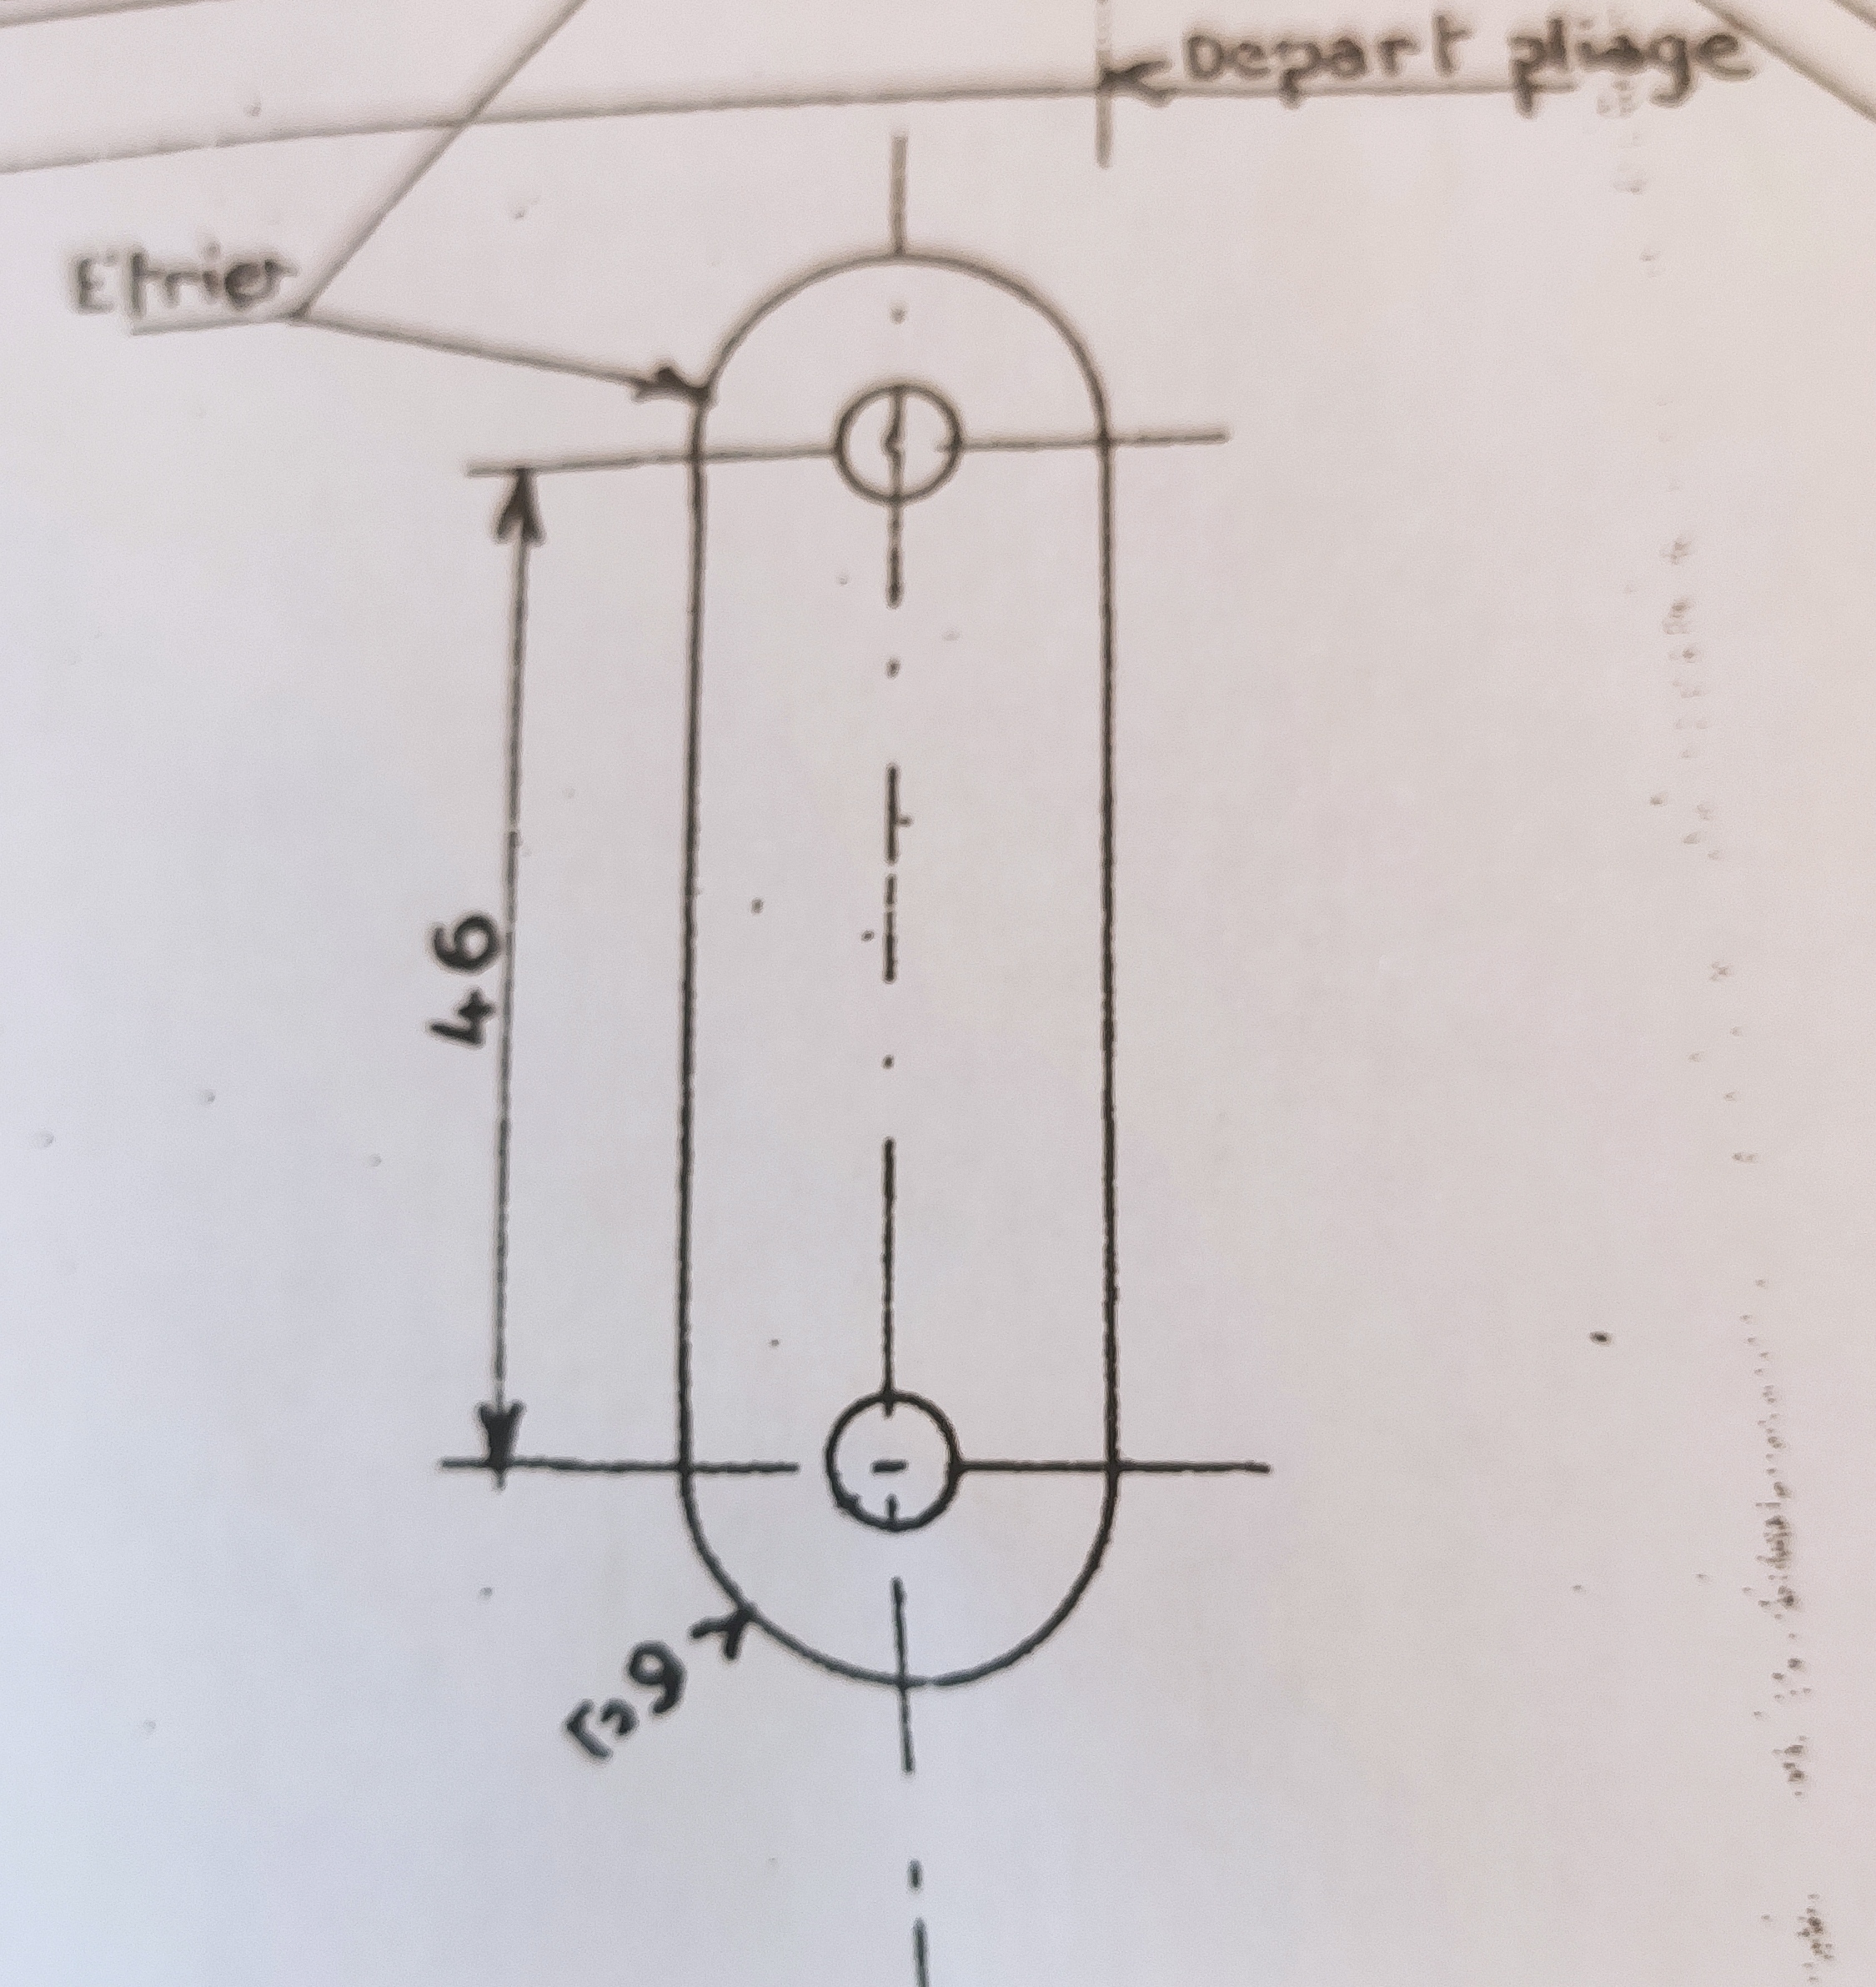 Depart pliage
Etrier
46
r=9